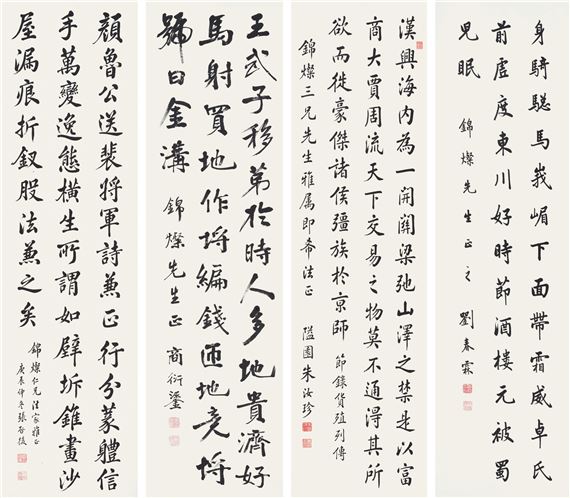 身騎驄馬峩嵋下面帶霜威卓氏
前虛度東川好時節酒樓元被蜀
兒眠
錦燦先生正之 劉春霖
漢興海內為一開關梁弛山澤之禁是以富
商大賈周流天下交易之物莫不通得其所
欲而徙豪傑諸侯彊族於京師 節錄貨殖列傳
錦燦三兄先生雅属即希法正 隘園朱汝珍
王武子移第於時人多地貴濟好
馬射買地作埒編錢匝地竟埒
號曰金溝 錦燦先生正 商衍鎏
顏魯公送裴將軍詩兼正行分篆體信
手萬變逸態橫生所謂如壁坼錐畫沙
屋漏痕折釵股法兼之矣
錦燦仁兄法家雅正
庚辰仲冬張啓後